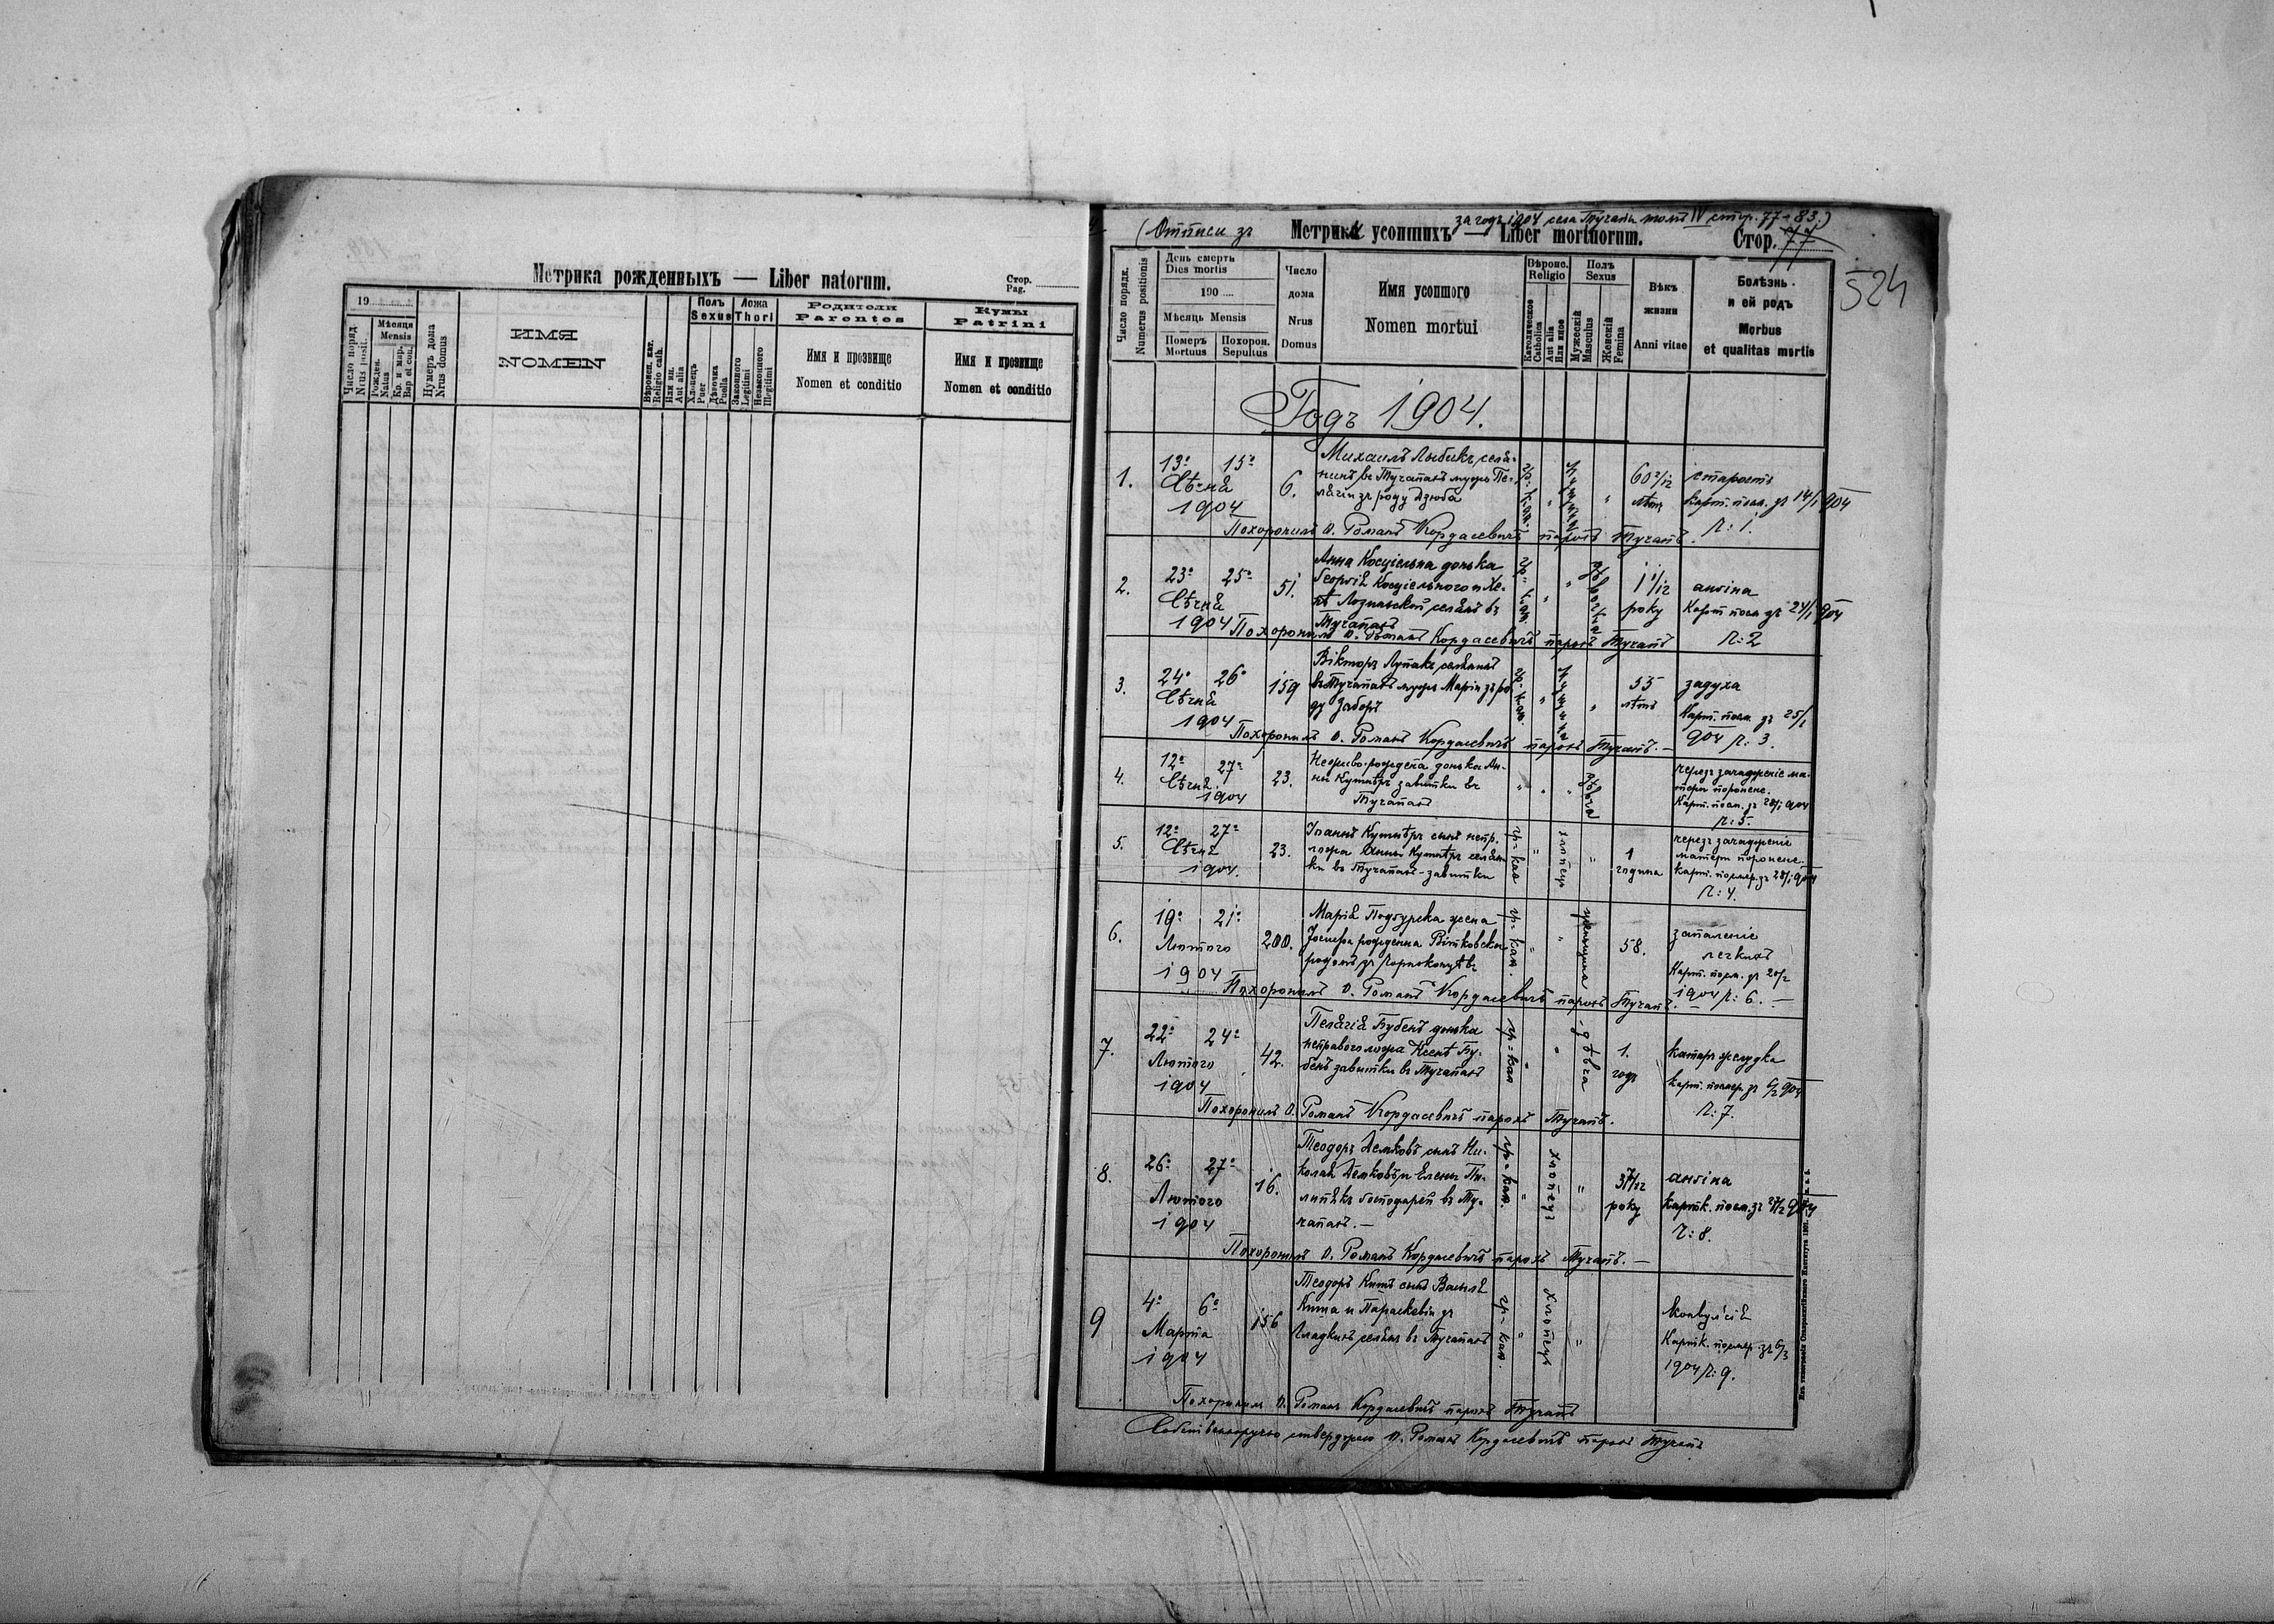 Метрика рожденныхъ — Liber natorum.
Стор.
Pag.
19
Число поряд.
Nrus posit.
Мѣсяця
Mensis
Рожден.
Natus
Кр. и мѵр.
Bap et con.
Нумеръ дома
Nrus domus
ИМЯ
NOMEN
Вѣроисп. кат.
Religio cath.
Или ин.
Aut alia
Полъ
Sexus
Хлопецъ
Puer
Дѣвочка
Puella
Ложа
Thori
Законного
Legitimi
Незаконного
Illegitimi
Родители
Parentes
Имя и прозвище
Nomen et conditio
Кумы
Patrini
Имя и прозвище
Nomen et conditio
за годъ 1904 села Тучапы томъ IV стор. 77-83.)
(Отписи зъ Метрики усопшихъ — Liber mortuorum. Стор. 77
524
Число порядк.
Numerus positionis
День смерти
Dies mortis
190
Мѣсяць Mensis
Померъ
Mortuus
Похорон.
Sepultus
Число
дома
Nrus
Domus
Имя усопшого
Nomen mortui
Вѣроис.
Religio
Католическое
Catholica
Aut alia
Или иное
Полъ
Sexus
Мужескій
Masculus
Женскій
Femina
Вѣкъ
жизни
Anni vitae
Болѣзнь
и ей родъ
Morbus
et qualitas mortis
Годъ 1904.
1. 13. 15. 6. Михаилъ Лыбикъ, селя-
Сѣчня нинъ въ Тучапахъ мужъ Пе-
1904 лягіи зъ роду Дзюба
гр.-кат. " мужчина " 60 2/12 лѣтъ
старость
Карт. посм. зъ 14/1 904
Ч: 1.
Похоронилъ О. Романъ Кордасевичъ парохъ Тучапъ.
2. 23. 25. 51. Анна Косцѣльна донька
Сѣчня Георгія Косцѣльного и
1904 Лозинской селянъ въ
Тучапахъ
гр.-кат. " " дѣвочка 1 1/12 року
ангіна
Карт. посм. зъ 24/1 904
Ч: 2
Похоронилъ О. Романъ Кордасевичъ парохъ Тучапъ
3. 24. 26. 159 Вікторъ Лупакъ селянинъ
Сѣчня въ Тучапахъ мужъ Маріи зъ ро-
1904 ду Заборъ
гр.-кат. " мужчина " 55 лѣтъ
задуха
Карт. посм. зъ 25/1
904 Ч: 3.
Похоронилъ О. Романъ Кордасевичъ парохъ Тучапъ. —
4. 12. 27. 23. донька Ан-
Сѣчня ны Кушнѣръ завитки въ
1904 Тучапахъ
" " " дѣвча
черезъ зачадженіе ма-
тери поронене.
Карт. посм. зъ 28/1 904
Ч: 5.
5. 12. 27. 23. Іоаннъ Кушнѣръ сынъ непр.
Сѣчня ложа Анны Кушнѣръ селян-
1904. ки въ Тучапахъ - завитки
гр.-кат " хлопець " 1 година
черезъ зачадженіе
матери поронене.
Карт. посмер. зъ 28/1 904
Ч: 4.
6. 19. 21. 200. Марія Подгурска жена
Лютого Іосифа рожденна Вітковска
1904 родомъ зъ
гр.-кат. " " женьщина 58.
запаленіе
легкихъ
Карт. посм. зъ 20/2
1904 Ч: 6. —
Похоронилъ О. Романъ Кордасевичъ парохъ Тучапъ. —
7. 22. 24. 42. Пелягія Бубенъ донька
Лютого неправого ложа Ксенѣ Бу-
1904 бенъ завитки въ Тучапахъ
гр.-кат " " дѣвча 1. годъ
катаръ желудка
Карт. посмер. зъ 904
Ч: 7.
Похоронилъ О. Романъ Кордасевичъ парохъ Тучапъ.
8. 26. 27. 16. Теодоръ Демковъ сынъ Ни-
Лютого колая Демковъ и Елены Пи-
1904 липякъ господарей въ Ту-
чапахъ. —
гр.-кат. " хлопець " року
ангіна
Картк. посм. зъ 27/2 904
Ч: 8.
Похоронилъ О. Романъ Кордасевичъ парохъ Тучапъ. —
9 4. 6. 156 Теодоръ Китъ сынъ Василя
Марта Кита и Параскевіи зъ
1904 Гладкихъ селянъ въ Тучапахъ
гр.-кат. " хлопець "
конвулсія
Картк. посмер. зъ 6/3
1904 Ч: 9.
Похоронилъ О. Романъ Кордасевичъ парохъ Тучапъ
Собственноручно стверджаю О. Романъ Кордасевичъ парохъ Тучапъ